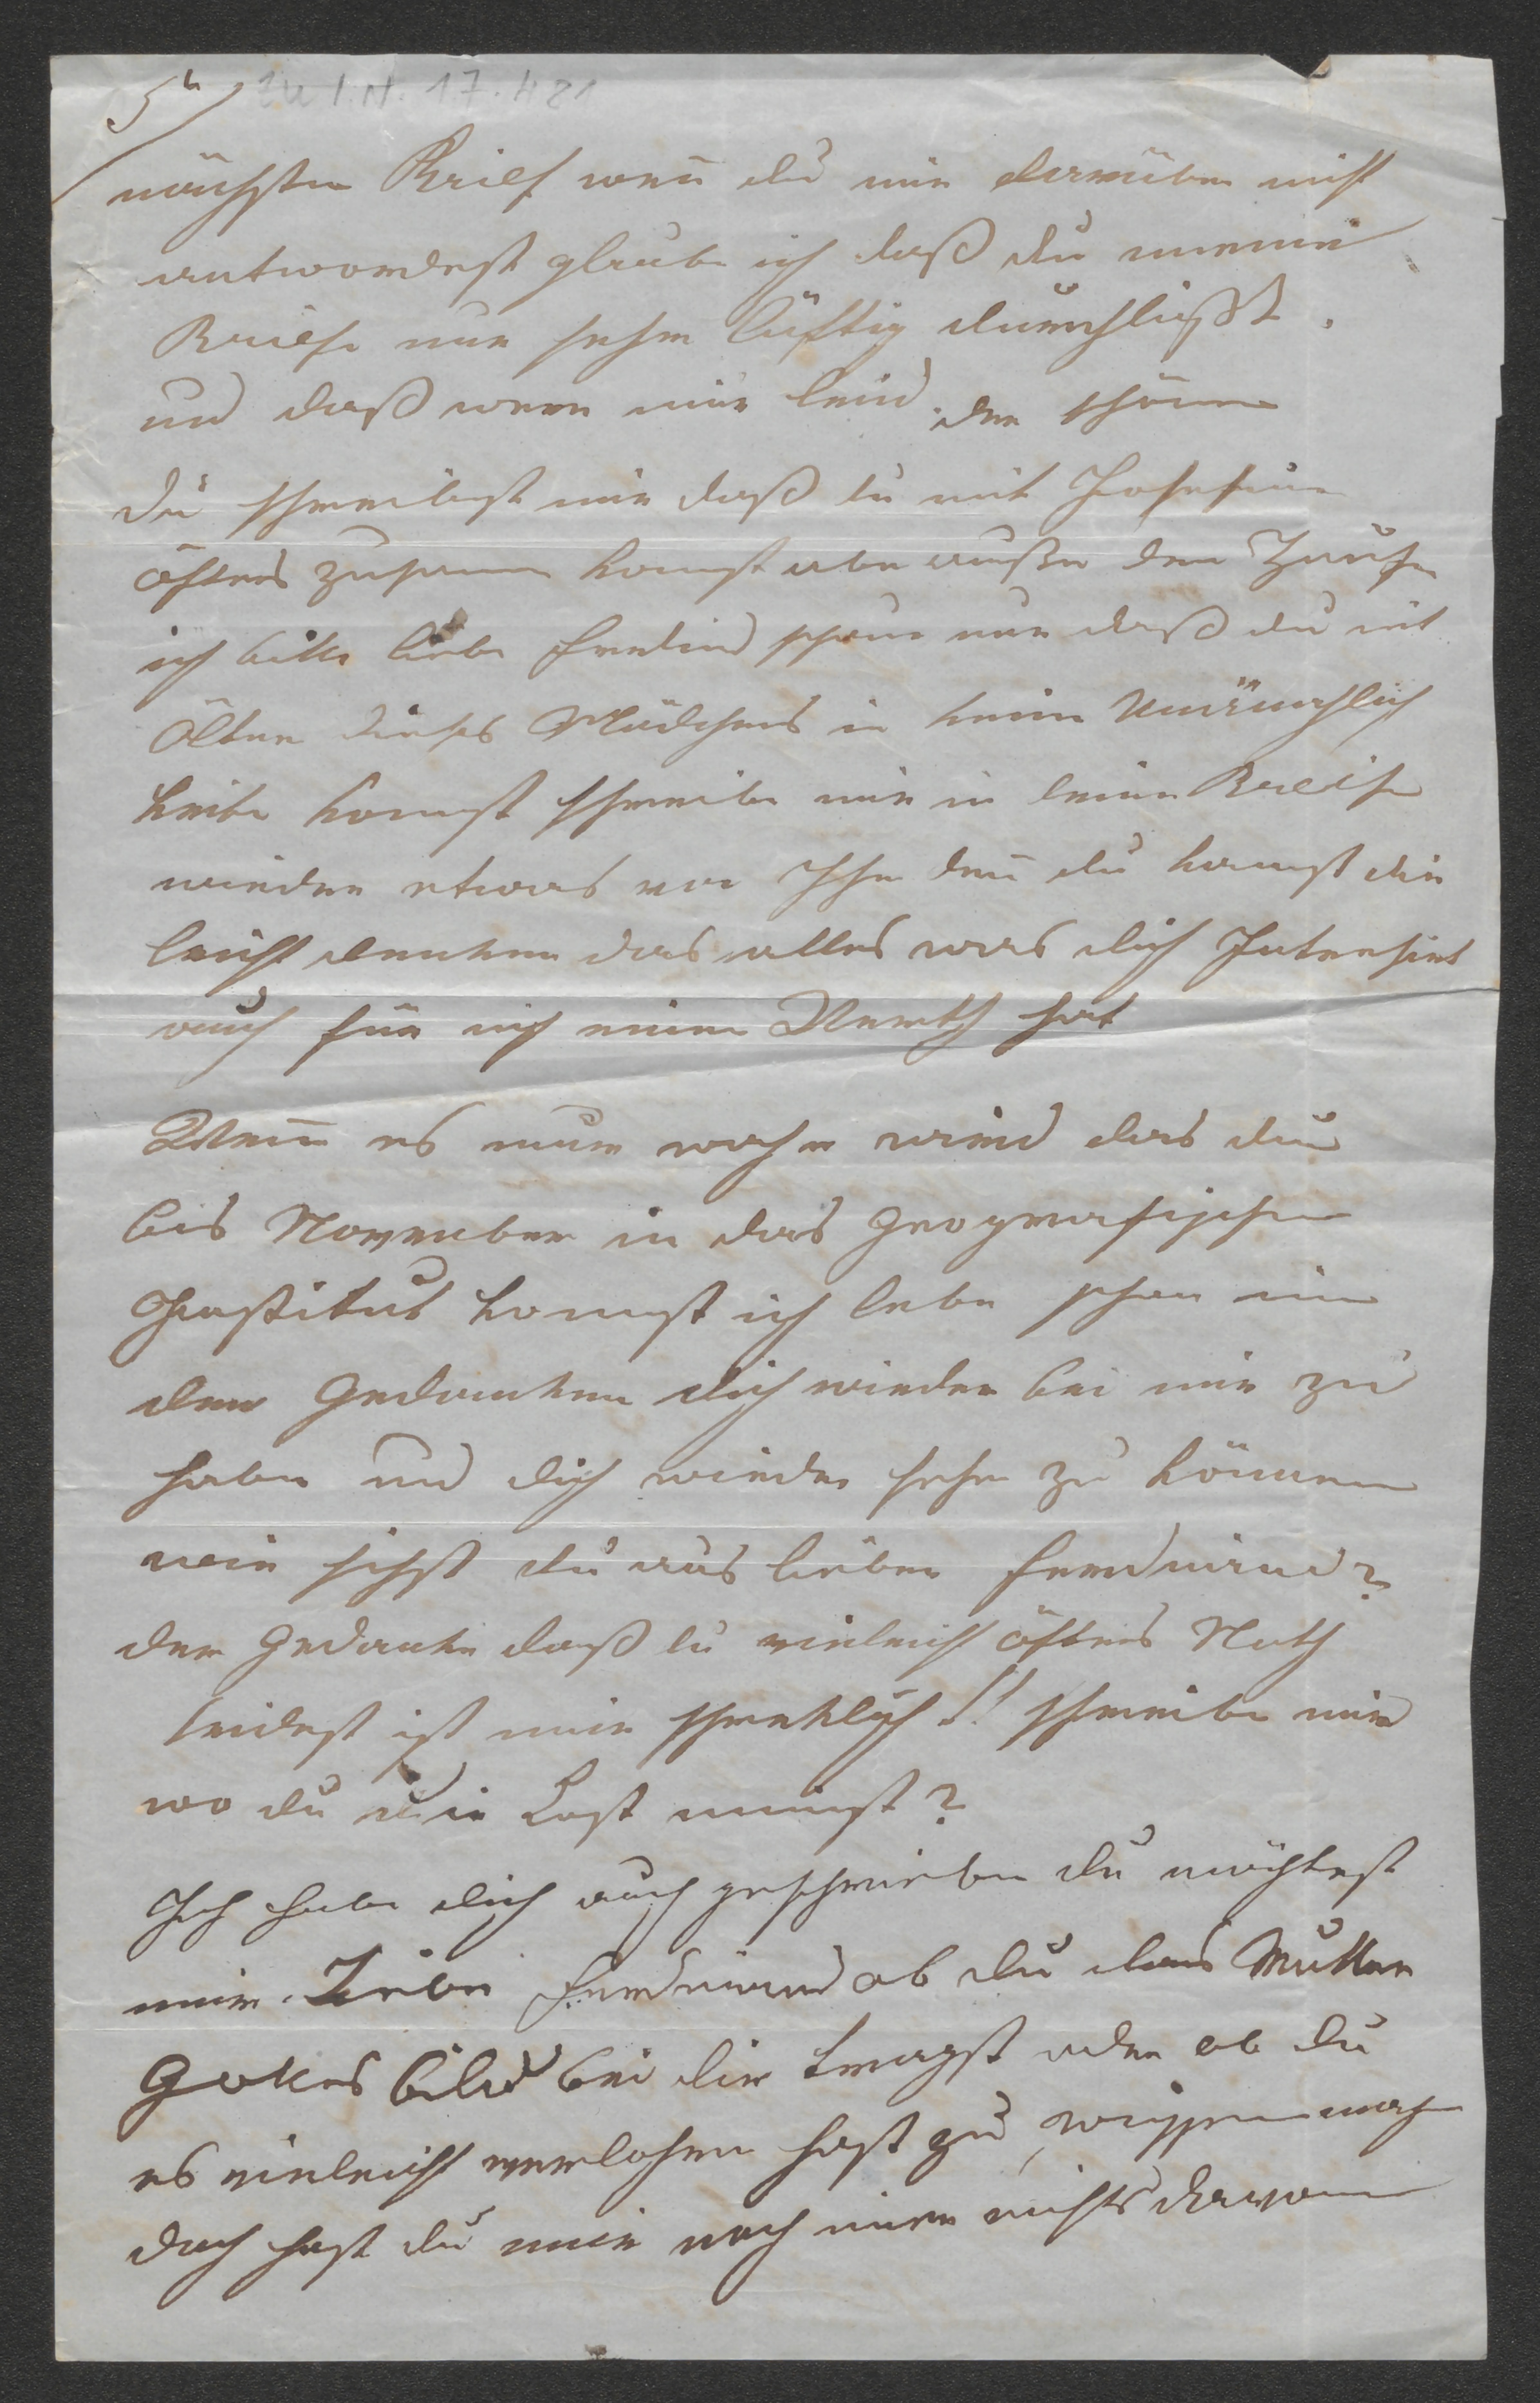 5tt
zu I.N. 17.421
nächsten Brief wen̄ du mir darüber nicht
antwordest glaube ich daß du meine
Briefe nur sehr lüftig durchließt.
und daß were mir leid. der schöne
du schreibest mir daß du mit Josefine
öfters zusamen komst aber außer den Hause
ich bitte liebe Ferdind schaue nur daß du mit
Ältern dieses Mädchens in keine Unanämlich
keiten komst schreibe mir in deinen Briefe
wieder etwas von Ihr den̄ du kanst dir
leicht denken das alles was dich Interesirt
auch für mich einen Werth hat
Wen̄ es nur wahr wird das du
bis November in das Geografischen
Institut komst ich lebe schon in
den Gedanken dich wieder bei mir zu
haben und dich wieder sehen zu können
wie sihst du aus lieber Ferdinand?
der Gedanke daß du vieleicht öfters Noth
leidest ist mir schreklich!! schreibe mir
wo du die Kost nimst?
Ich habe dich auch geschrieben du möchtest
mir Liebe Ferdinand ob du das Mutter
Gottes bild bei dir tragst oder ob du
es vieleicht verlohren hast zu wissen machen
doch hast du mir noch imer nichts davon